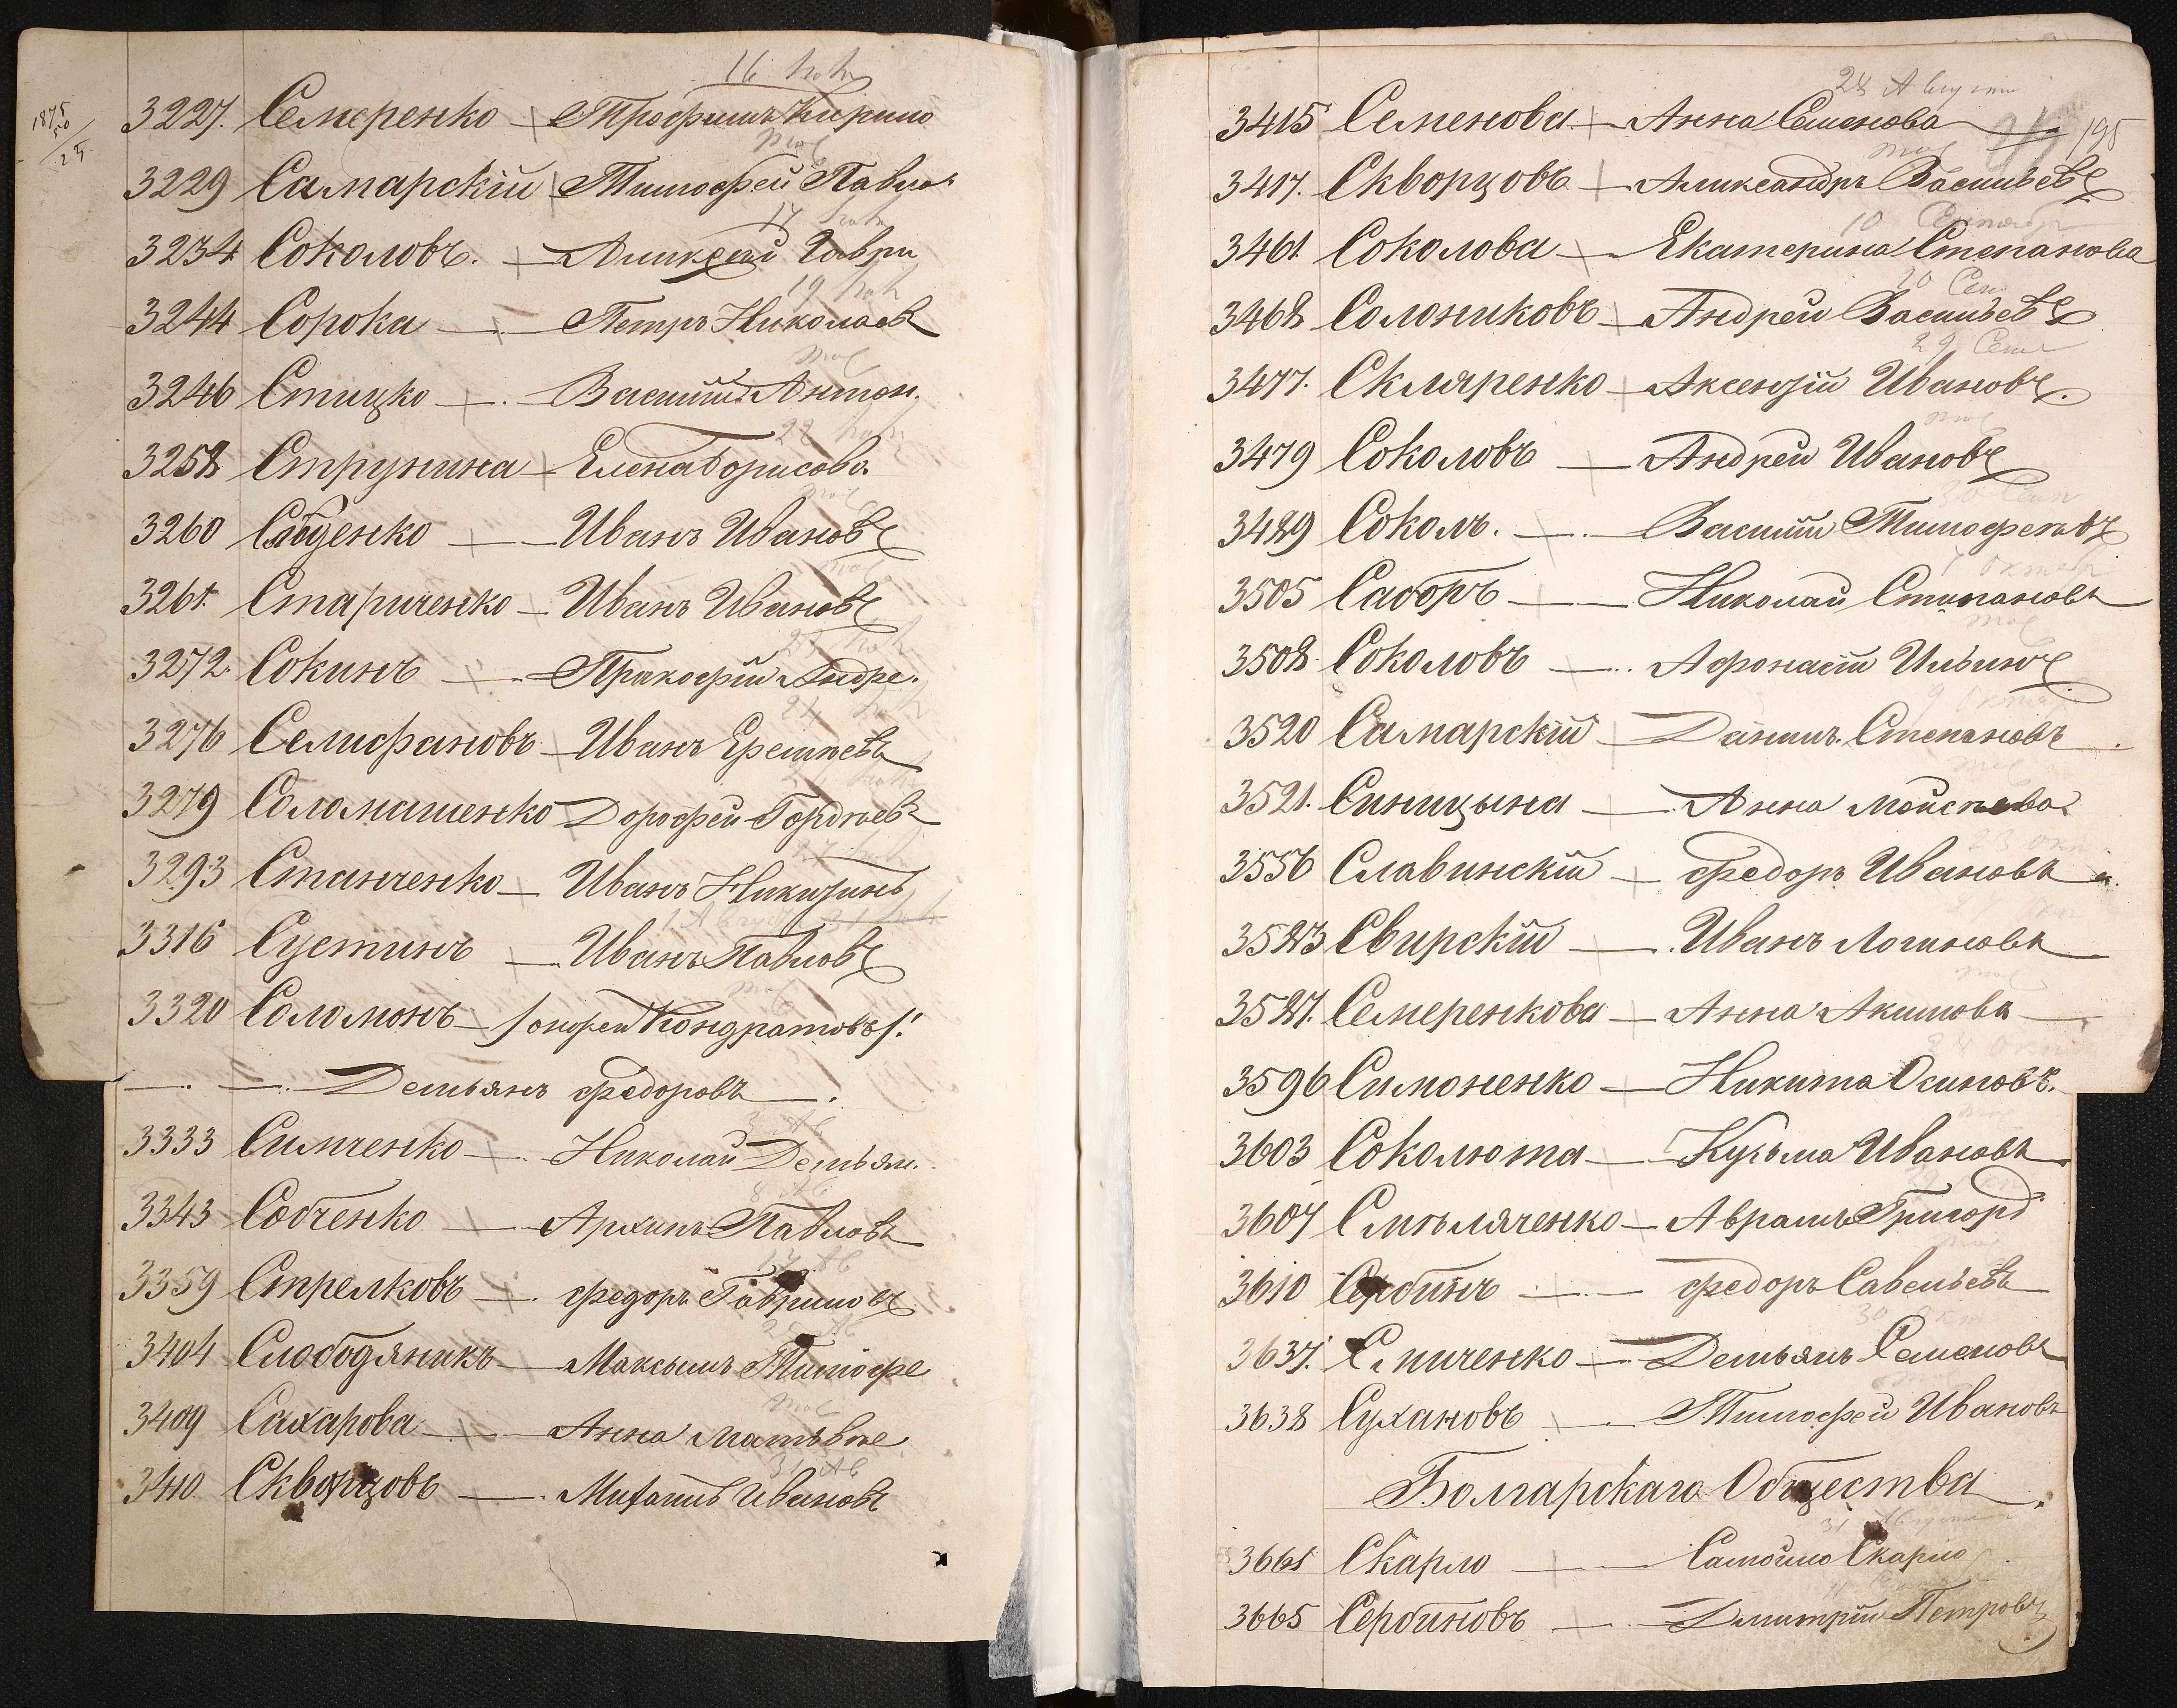 3227. Семеренко — Трофимъ Кирило
3229 Самарскій — Тимофей Павло
3234 Соколовъ. — Аликсей Гаври
3244 Сорока — Петръ Николаевъ
3246 Стицко — Василій Антон.
3258 Струнина — Елена Борисова
3260 Сабденко — Иванъ Ивановъ
3261. Стариченко — Иванъ Ивановъ
3272. Сокинъ — Пракофій Андре.
3276 Селифановъ — Иванъ Еремѣевъ
3279 Соломашенко Дорофей Гордѣевъ
3293 Станченко — Иванъ Никитинъ
3316 Сустинъ — Иванъ Павловъ
3320 Соломонъ — /онофрей Кондратовъ/.
— — Демьянъ Федоровъ —.
3333 Симченко — Николай Демьян.
3343 Собченко — Архипъ Павловъ
3359 Стрелковъ — Федоръ Гавриловъ
3404 Слободяникъ — Максымъ Тимофе
3409 Сахарова — Анна Матьвѣе
3410 Скворцовъ — Михаилъ Ивановъ
28 Августа
3415 Семенова — Анна Семенова — 195
3417. Скворцовъ — Аликсандръ Васильевъ
10 Сентябр
3461 Соколова — Екатерина Степанова
20 Сен.
3468 Солониковъ — Андрей Васильевъ
29 Сент
3477. Скляренко — Аксентій Ивановъ.
3479 Соколовъ — Андрей Ивановъ
3489 Соколъ. — Василій Тимофеевъ
3505 Саборъ — Николай Стипановъ
3508 Соколовъ — Афонасій Ильинъ
3520 Самарскій — Данилъ Степановъ.
3521. Синицына — Анна Мойсѣева
3556 Славинскій — Федоръ Ивановъ
Свирскій — Иванъ Логиновъ
Семеренкова — Анна Акимова —
3596 Симоненко — Никита Осиповъ.
3603 Соколюта — Кузьма Ивановъ
3607 Смѣляченко — Аврамъ Григорь
3610 Сербинъ — Федоръ Савельевъ
3637. Спиченко — Демьянъ Семеновъ
3638 Сухановъ — Тимофей Ивановъ
Болгарскаго Общества.
31 Августа
3661 Скарло — Самойло Скарло
3665 Сербиновъ — Дмитрій Петровъ